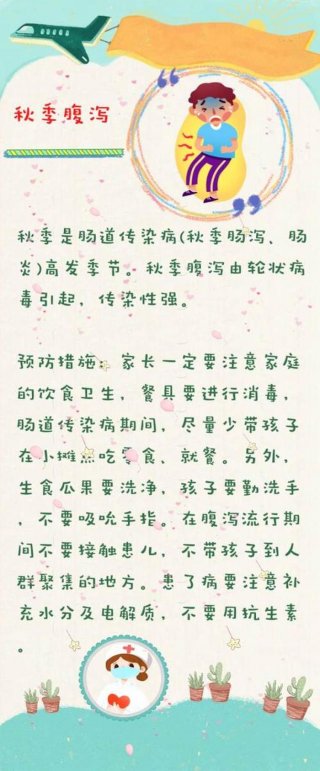 秋季腹泻
秋季是肠道传染病(秋季肠泻、肠
炎)高发季节。秋季腹泻由轮状病
毒引起，传染性强。
预防措施：家长一定要注意家庭
的饮食卫生，餐具要进行消毒，
肠道传染病期间，尽量少带孩子
在小摊点吃零食、就餐。另外，
生食瓜果要洗净，孩子要勤洗手
，不要吸吮手指。在腹泻流行期
间不要接触患儿，不带孩子到人
群聚集的地方。患了病要注意补
充水分及电解质，不要用抗生素
。